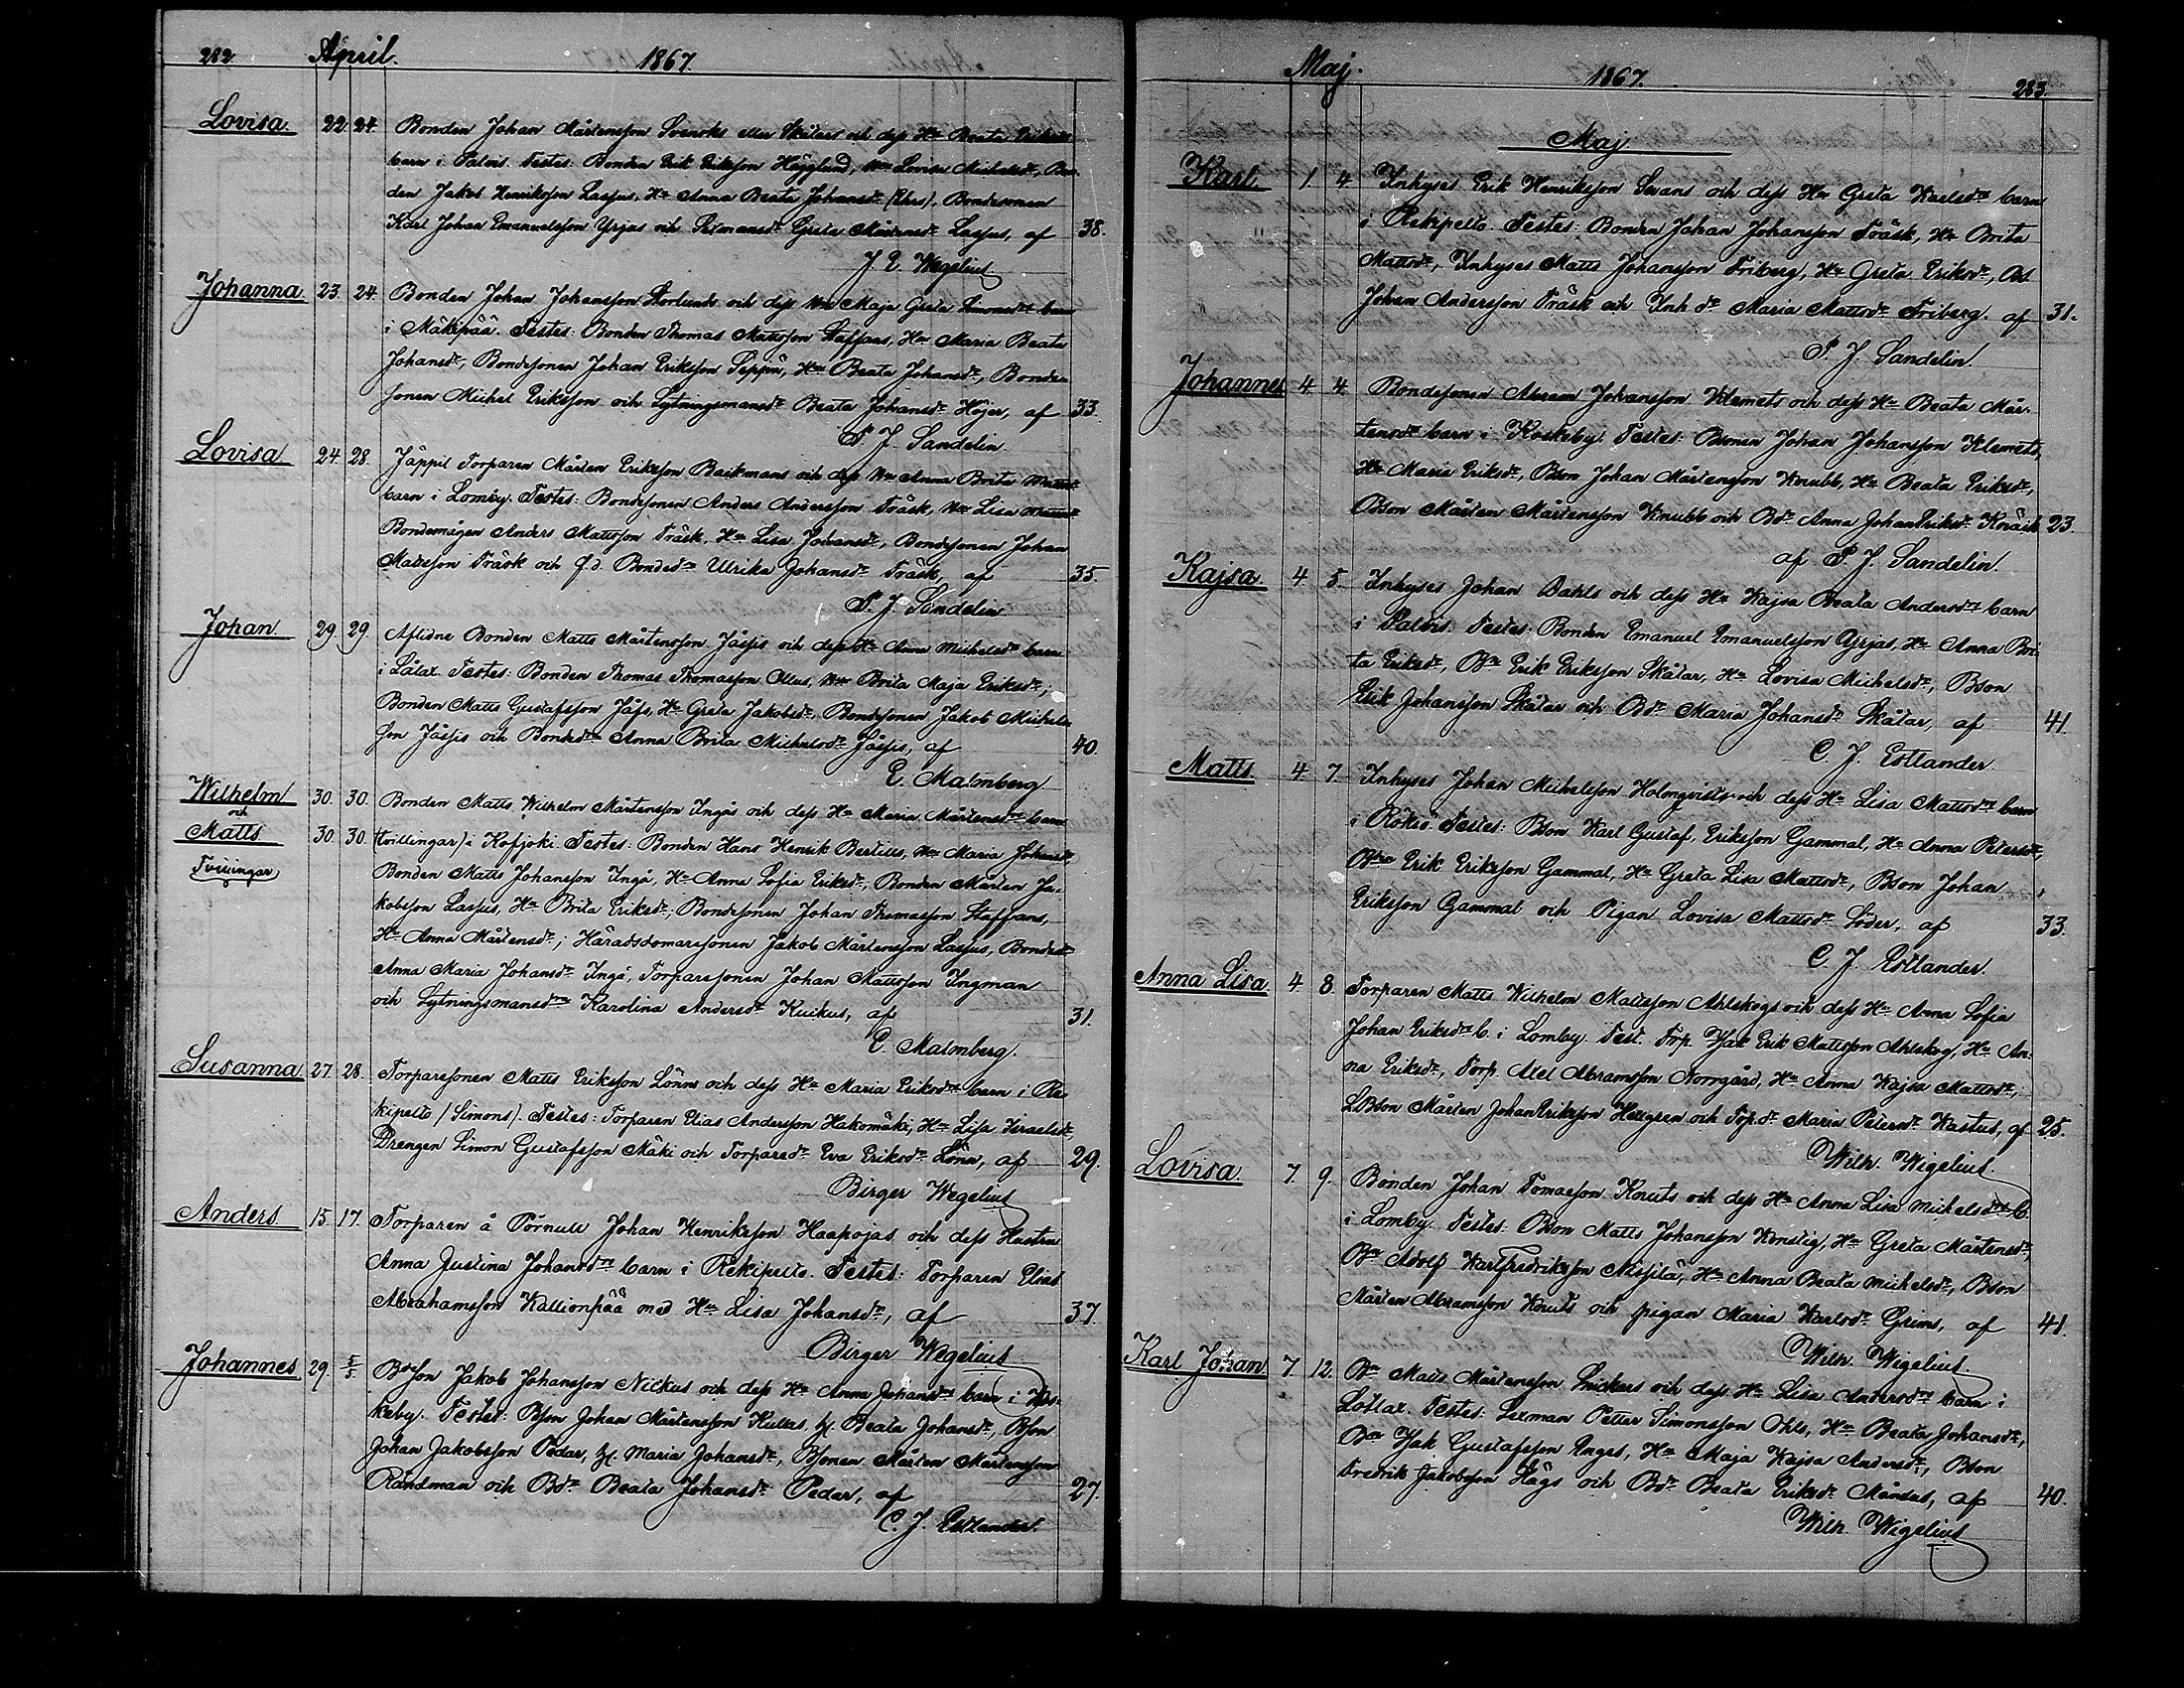 282. April. 1867.
Lovisa. 22. 24. Bonden Johan Mårtensson Svenoks eller Skatars och dess Hu Beata Eriksd.
barn i Palvis. Testes: Bonden Erik Eriksson Hägglund, Hu Lovisa Michelsdr, Bon-
den Jakob Henriksson Lassus, Hu Anna Beata Johansdr (Ehrs), Bondesonen
Karl Johan Emanuelsson Yrjas och Sexmansdr Greta Mårtensdr Lassus, af 38.
J E Wegelius
Johanna. 23. 24. Bonden Johan Johansson Storlunds och dess Hu Maja Greta Simonsdrs barn
i Mäkipää. Testes: Bonden Thomas Mattsson Staffans, Hu Maria Beata
Johansdr, Bondesonen Johan Eriksson Seppä, Hu Beata Johansdr, Bonde
sonen Michel Eriksson och Lytningsmansdr Beata Johansdr Höjer, af 33.
P. J. Sandelin.
Lovisa. 24. 28. Jäppil Torparen Mårten Eriksson Backmans och dess Hu Anna Brita Mattsd.
barn i Lomby. Testes: Bondesonen Anders Andersson Träsk, Hu Lisa Mattsdr
Bondemågen Anders Mattsson Träsk, Hu Lisa Johansdr, Bondesonen Johan
Mattsson Träsk och f.d. Bondedr Ulrika Johansdr Träsk, af 35.
P. J. Sandelin
Johan. 29. 29. Aflidne Bonden Matts Mårtensson Jåssis och dess Hu Anna Michelsdrs barn
i Låtax. Testes: Bonden Thomas Thomasson Ollus, Hu Brita Maja Eriksdr,
Bonden Matts Gustafsson Jåfs, Hu Greta Jakobsdr, Bondesonen Jakob Michels-
son Jåssis och Bondedr Anna Brita Michelsdr Jåssis, af 40.
E. Malmberg
Wilhelm 30. 30. Bonden Matts Wilhelm Mårtensson Ingås och dess Hu Maria Mårtensdrs barn
och
Matts 30. 30. (tvillingar) i Kofjoki. Testes: Bonden Hans Henrik Bertills, Hu Maria Johansdr
Tvillingar,
Bonden Matts Johansson Ingå, Hu Anna Sofia Eriksdr, Bonden Mårten Ja-
kobsson Lassus, Hu Brita Eriksdr, Bondesonen Johan Thomasson Staffans,
Hu Anna Mårtensdr; Häradsdomaresonen Jakob Mårtensson Lassus, Bondedr
Anna Maria Johansdr Ingå, Torparesonen Johan Mattsson Ingman
och Lytningsmansdr Karolina Andersdr Kuikus, af 31.
E. Malmberg.
Susanna 27. 28. Torparesonen Matts Eriksson Lönns och dess Hu Maria Eriksdrs barn i Re-
kipelto (Simons). Testes: Torparen Elias Andersson Hakomäki, Hu Lisa Israelsdr,
Drengen Simon Gustafsson Mäki och Torparedr Eva Eriksdr Lönn, af 29.
Birger Wegelius
Anders. 15. 17. Torparen å Pörnull Johan Henriksson Haapojas och dess Hustru
Anna Justina Johansdrs barn i Rekipelto. Testes: Torparen Elias
Abrahamsson Kallionpää med Hu Lisa Johansdr, af 37.
Birger Wegelius
Johannes 29. 5/5. Bdson Jakob Johansson Nickus och dess Hu Anna Johansdrs barn i Kos-
keby. Testes: Bson Johan Mårtensson Kullas, H. Beata Johansdr, Bson
Johan Jakobsson Pedar, H. Maria Johansdr, Bsonen Mårten Mårtensson
Råndman och Bdr Beata Johansdr Pedar, af 27.
C. J. Estlander.
Maj. 1867. 283.
Maj
Karl. 1. 4. Inhyses Erik Henriksson Svans och dess Hu Greta Karlsdrs barn
i Rekipelto. Testes: Bonden Johan Johansson Träsk, Hu Brita
Mattsdr, Inhyses Matts Johansson Friberg, Hu Greta Eriksdr, Bs
Johan Andersson Träsk och Inh. dr Maria Mattsdr Friberg, af 31.
P. J. Sandelin
Johannes 4. 4. Bondesonen Abram Johansson Klemets och dess Hu Beata Mår-
tensdrs barn i Koskeby. Testes: Bsonen Johan Johansson Klemets,
Hu Maria Eriksdr, Bson Johan Mårtensson Knubb, Hu Beata Eriksdr,
Bson Mårten Mårtensson Knubb och Bdr Anna JohanEriksdr Knäsk 23.
af P. J. Sandelin.
Kajsa. 4. 5. Inhyses Johan Dahls och dess Hu Kajsa Beata Andersdrs barn
i Palvis. Testes: Bonden Emanuel Emanuelsson Yrjas, Hu Anna Bri-
ta Eriksdr, Bn Erik Eriksson Skåtar, Hu Lovisa Michelsdr, Bson
Erik Johansson Skåtar och Bdr Maria Johansdr Skåtar, af 41.
C. J. Estlander
Matts. 4 7. Inhyses Johan Michelsson Holmqvists och dess Hu Lisa Mattsdrs barn
i Rökiö. Testes: Bson Karl Gustaf Eriksson Gammal, Hu Anna Petersdr,
Bson Erik Eriksson Gammal, Hu Greta Lisa Mattsdr, Bson Johan
Eriksson Gammal och Pigan Lovisa Mattsdr Söder, af 33.
C. J. Estlander.
Anna Lisa. 4. 8. Torparen Matts Wilhelm Mattsson Ahlskogs och dess Hu Anna Sofia
Johan Eriksdrs b. i Lomby. Test. Trp. Jak Erik Mattsson Ahlskog, Hu An-
na Eriksdr, Torp. Axel Abramsson Norrgård, Hu Anna Kajsa Mattsdr,
LBson Mårten JohanEriksson Hellgren och Trp.dr Maria Petersdr Kastus, af 25.
Wilh. Wigelius.
Lovisa. 7. 9. Bonden Johan Tomasson Knuts och dess Hu Anna Lisa Michelsdrs b.
i Lomby. Testes: Bson Matts Johansson Konstig, Hu Greta Mårtensdr,
Bn Adolf KarlFredriksson Nissilä, Hu Anna Beata Michelsdr, Bson
Mårten Abramsson Knuts och pigan Maria Karlsdr Grims, af 41.
Wilh. Wigelius
Karl Johan 7. 12. Bn Matts Mårtensson Snickars och dess Hu Lisa Andersdrs barn i
Lotlax. Testes: Sexman Petter Simonsson Ohls, Hu Beata Johansdr,
Bn Jak Gustafsson Enges, Hu Maja Kajsa Andersdr, Bson
Fredrik Jakobsson Hägs och Bdr Beata Eriksdr Månsus, af 40.
Wilh. Wigelius